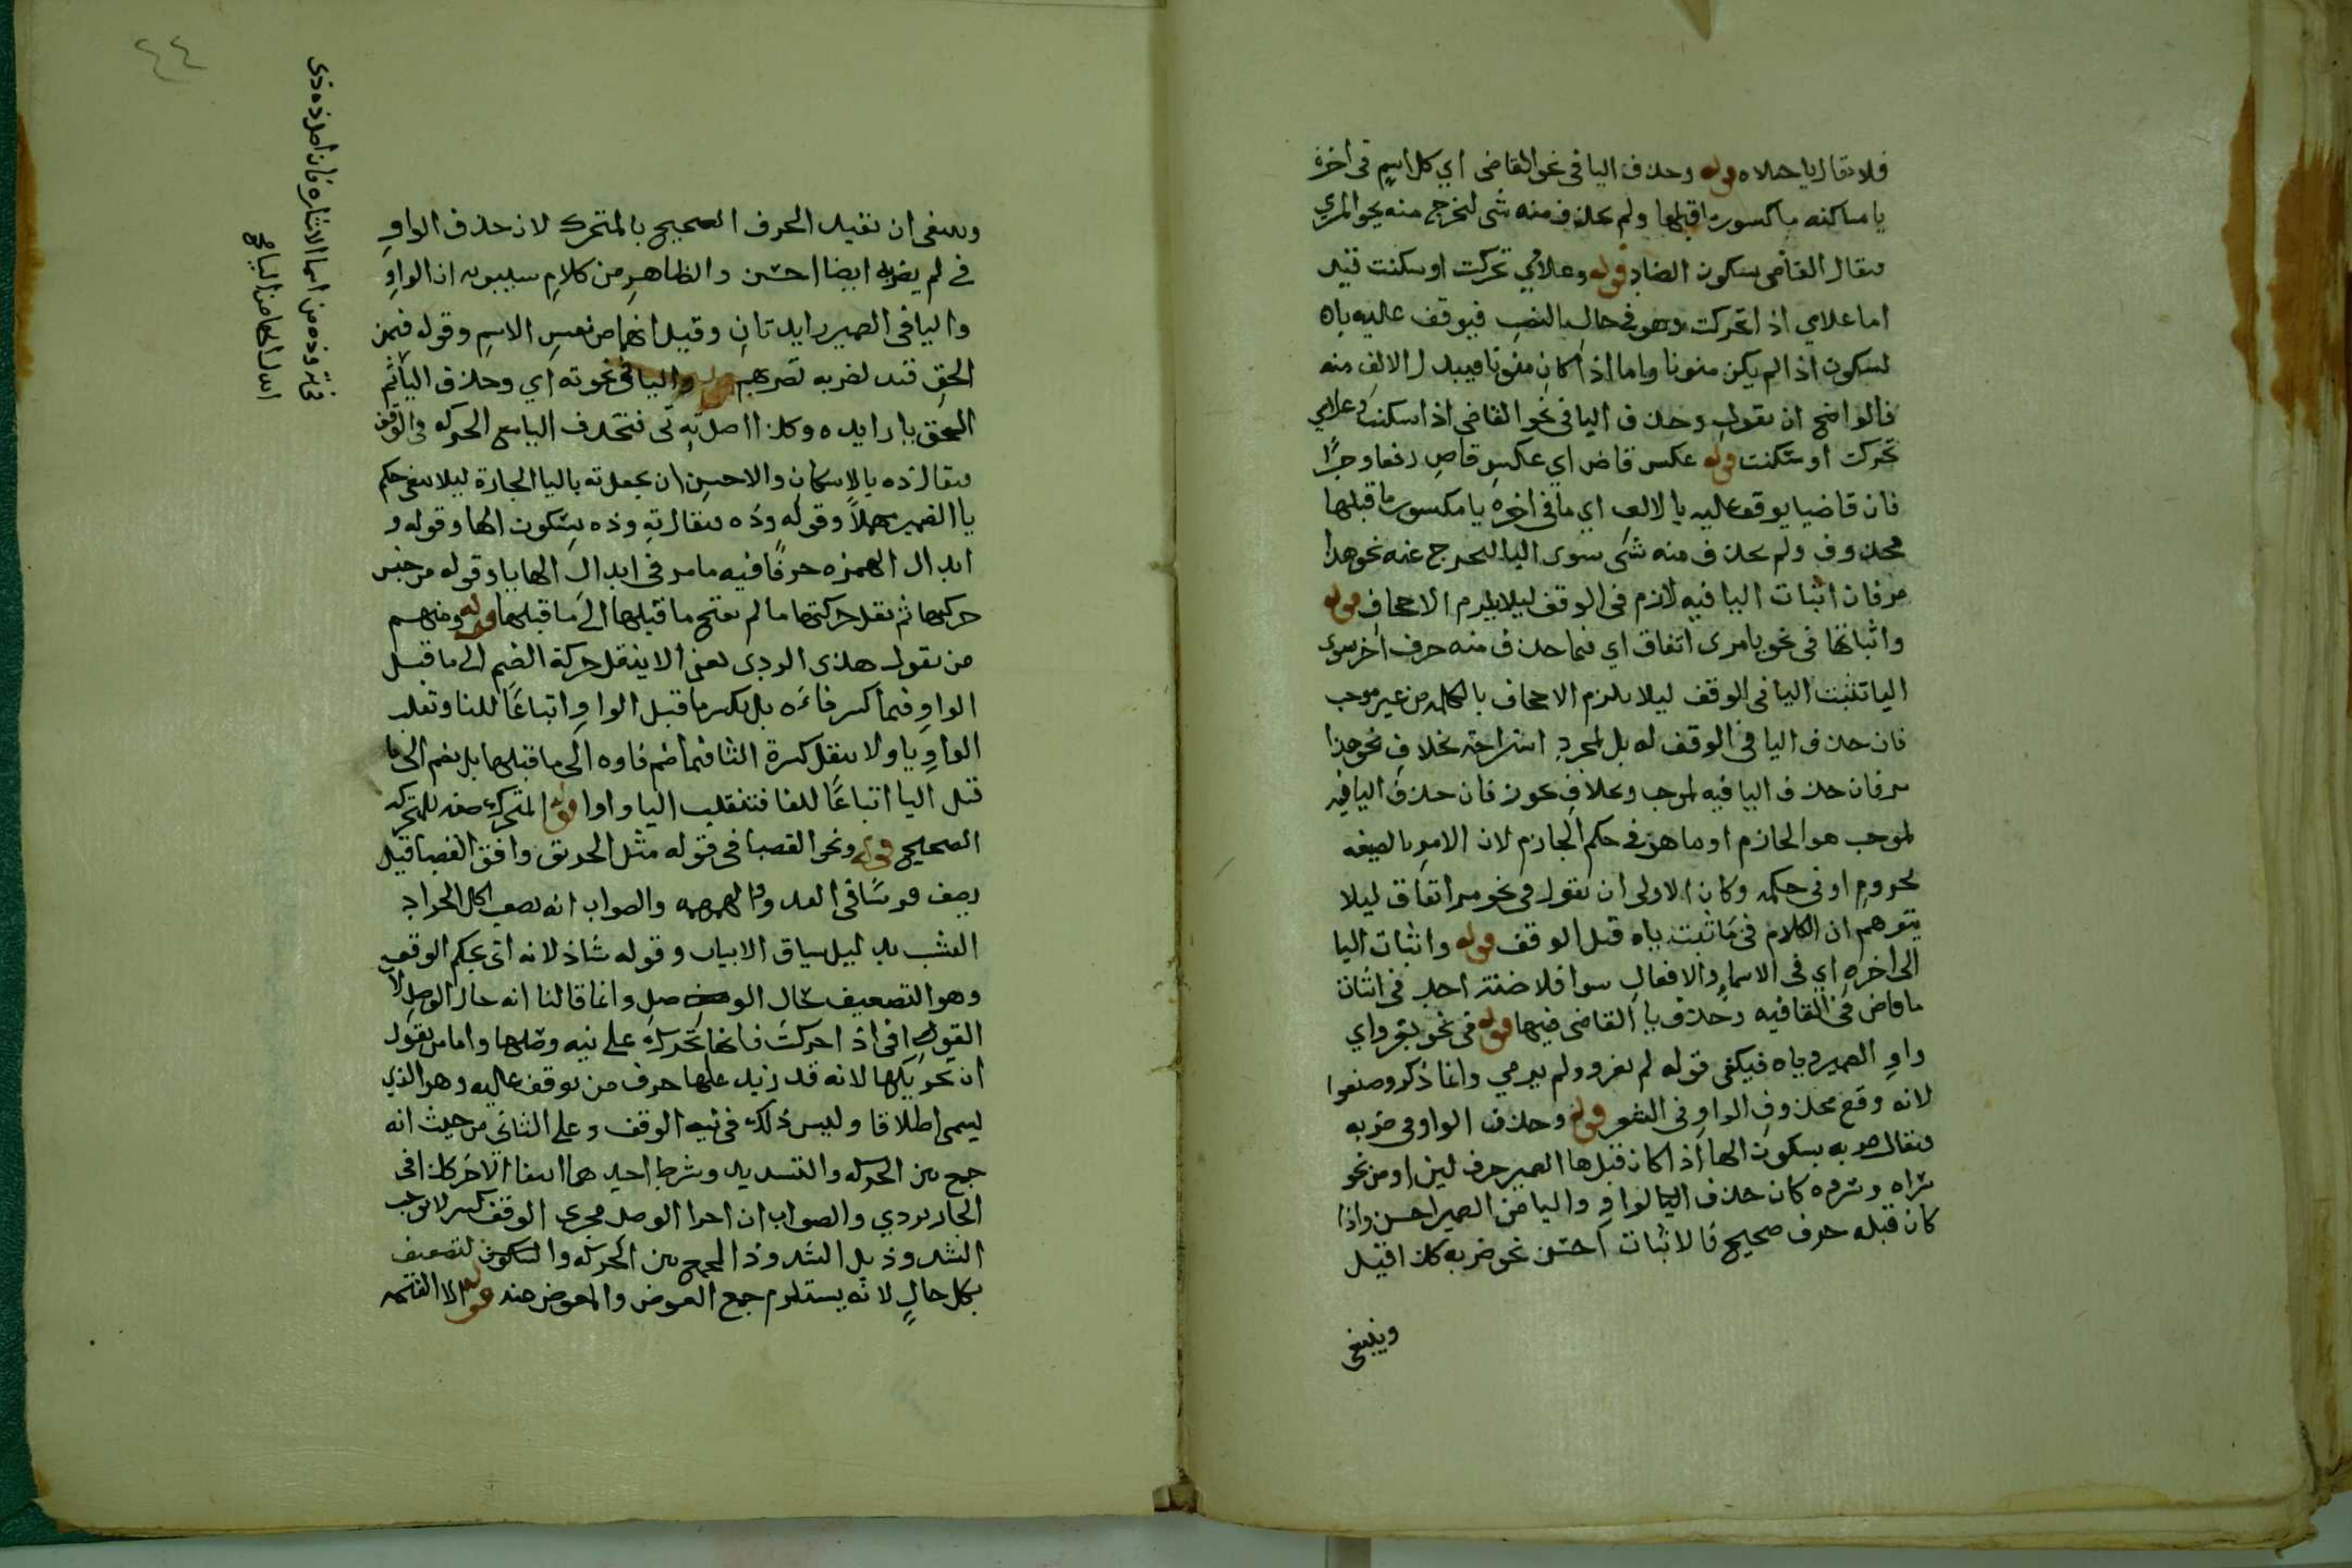 فلا يقال يا حبلاه قوله وحذف اليا في نحو القاضي اي كل اسم في اخره
يا ساكنه مكسور ما قبلها ولم يحذف منه شي ليخرج منه نحو المري
فيقال القاضي بسكون الضاد قوله وغلامي تحركت او سكنت قيد
اما غلامي اذا تحركت وهو في حال النصب فيوقف عليه ياه
لسكون اذا لم يكن منونا واما اذا كان منونا فيبدل الالف منه
فالواضح ان يقول وحذف اليا في نحو القاضي اذا سكنت وغلامي
تحركت او سكنت قوله عكس قاض اي عكس قاض رفعا وجرا
فان قاضيا يوقف عليه بالالف اي ما في اخره يا مكسور ما قبلها
محذوف ولم يحذف منه شي سوى اليا ليخرج عنه نحو هذا
مر فان اثبات اليا فيه لازم في الوقف ليلا يلزم الاجحاف قوله
واثباتها في نحو يا مرى اتفاق اي فيما حذف منه حرف اخر سوى
اليا تثبت اليا في الوقف ليلا يلزم الاجحاف بالكلمه من غير موجب
فان حذف اليا في الوقف له بل لمجرد استراحة بخلاف نحو هذا
مر فان حذف اليا فيه لموجب وبخلاف نحو فان حذف اليا فيه
لموجب هو الجازم او ما هو في حكم الجازم لان الامر بالصيغه
مجزوم او في حكمه وكان الاولى ان يقول في نحو مر اتفاق ليلا
يتوهم ان الكلام في ما ثبت ياه قبل الوقف قوله واثبات اليا
الى اخره اي في الاسماء والافعال سوا فلا في اثبات
ما قاض في القافيه وحذف يا القاضي فيها قوله في نحو يغزو اي
واو الضمير وياه فيكفي قوله لم يغزو ولم يرمي وانما ذكر وصنعوا
لانه وقع محذوف الواو في الشعر قوله وحذف الواو في ضربه
فيقال ضربه بسكون الها اذا كان قبلها الضمير حرف لين او من نحو
تراه وتروه كان حذف الواو واليا من الضمير احسن واذا
كان قبله حرف صحيح فالاثبات احسن نحو ضربه كذا قيل
وينبغي
٤٤
وينبغي ان نقيد الحرف الصحيح بالمتحرك لان حذف الواو
في لم يضربه ايضا احسن والظاهر من كلام سيبويه ان الواو
واليا في الضمير زايدتان وقيل انهما من نفس الاسم وقوله فيمن
الحق قيد لضربه تضربهم قوله واليا في نحو ته اي وحذف اليا ثم
الحق يا زايده وكذا اصل ته تي فتحذف اليا مع الحركه في الوقف
فيقال ذه بالاسكان والاحسن ان يجعل ته باليا الجارة ليلا يبقى حكم
يا الضمير مهملا وقوله وذه فيقال ته وذه بسكون الها وقوله و
ابدال الهمزه حرفا فيه ما مر في ابدال الها يا وقوله من جنس
حركتها ثم نقل حركتها ما لم يفتح ما قبلها الى ما قبلها قوله ومنهم
من يقول هذي الردي يعني الا ينقل حركة الضم الى ما قبل
الواو فيما كسر فاءه بل يكسر ما قبل الواو اتباعا للفا وتقلب
الواو يا ولا ينقل كسرة الثا فيما ضم فاوه الى ما قبلها بل يضم الى ما
قبل اليا اتباعا للفا فتنقلب اليا واوا قوله المتحرك صفه للمتحركه
الصحيح قوله ونحو القصبا في قوله مثل الحريق وافق القصبا قيل
يصف فرسا في العدو والصواب انه يصف اكل الجراد
العشب بدليل سياق الابيات وقوله شاذ لانه اتى بحكم الوقف
وهو التضعيف بحال الوصل وانما قالنا انه حال الوصل لان
القوافي اذا حركت فانها تحرك على نيه وصلها واما من يقول
ان تحريكها لانه قد زيد عليها حرف من توقف عاليه وهو الذي
ليسمى اطلاقا وليس ذلك في نيه الوقف وعلى الثاني من حيث انه
جمع بين الحركه والتشديد وشرط احدهما انتفا الاخر كذا في
الجاربردي والصواب ان اجرا الوصل مجرى الوقف كسر لا يوجب
الشذوذ بل الشذوذ الجمع بين الحركه والتضعيف
بكل حال لانه يستلزم جمع العوض والمعوض عنه قوله الا الفتحه
تحته وذه من اسما الاشاره فان اصل ذه ذى
ابدل الها من اليا صح